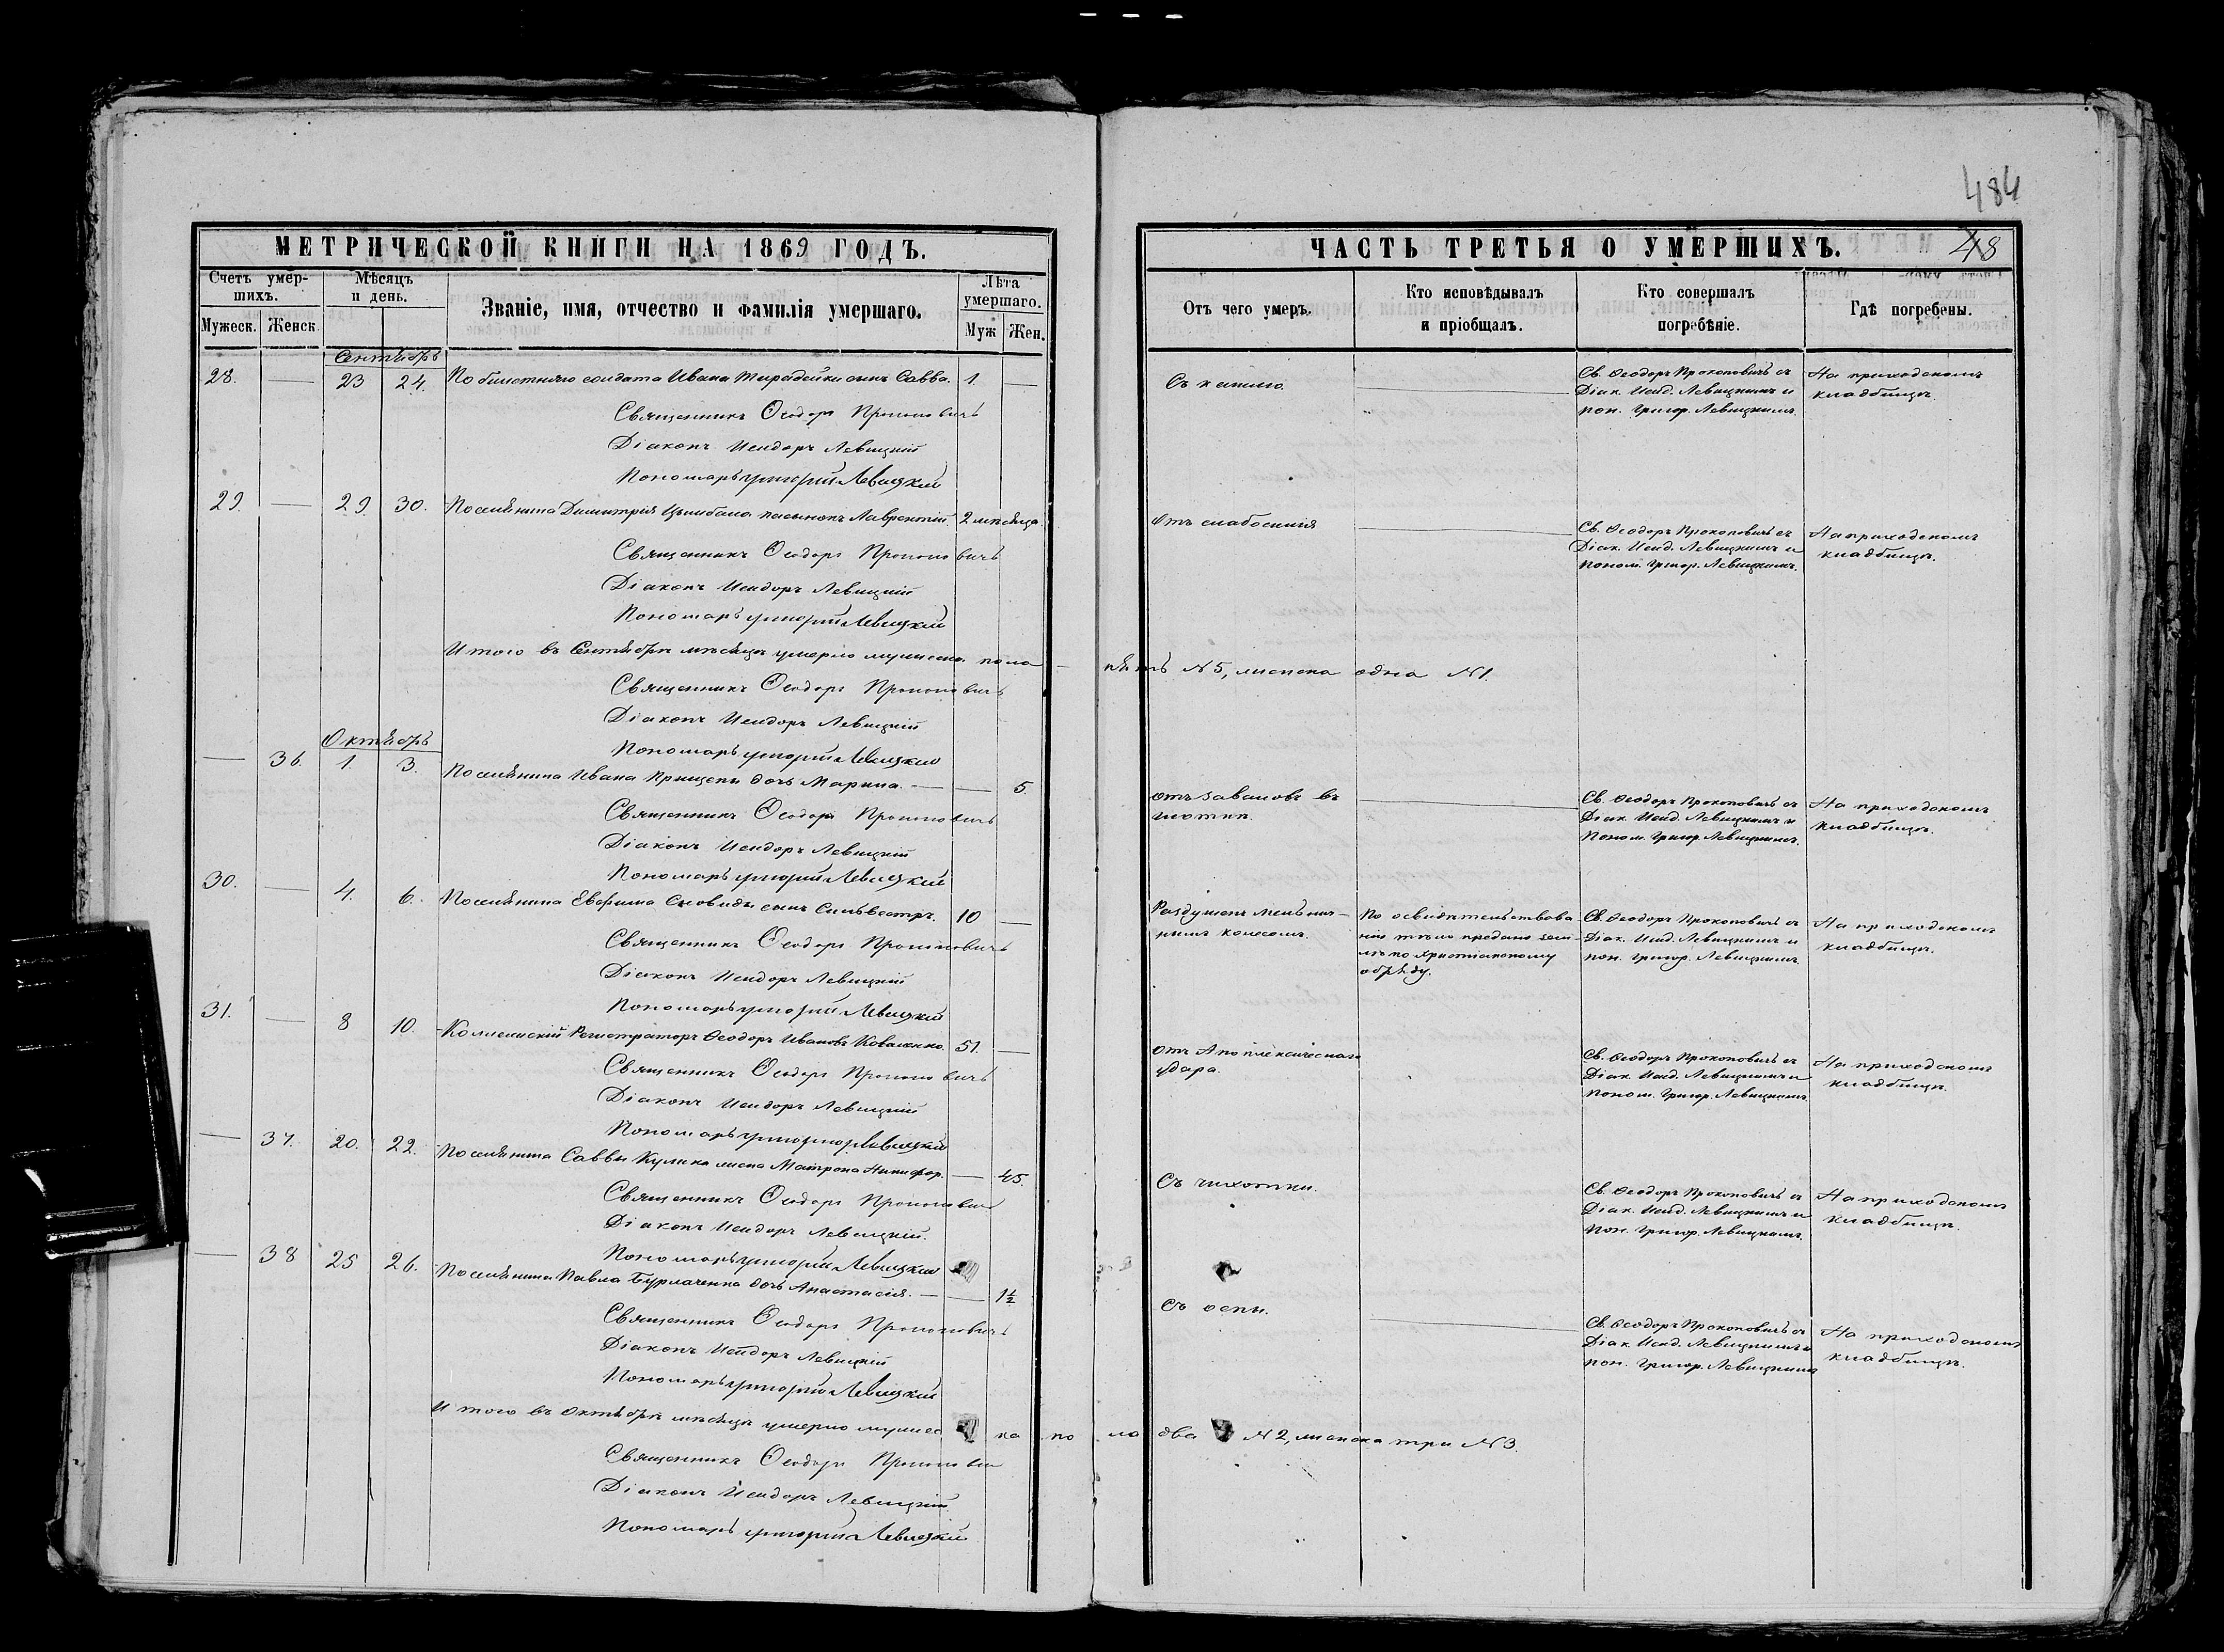 484
МЕТРИЧЕСКОЙ КНИГИ НА 1869 ГОДЪ.
Счетъ умер-
шихъ.
Мѣсяцъ
и день.
Званіе, имя, отчество и фамилія умершаго.
Лѣта
умершаго.
Мужеск. Женск.
Муж Жен.
Сентябрь
28. — 23 24. Побилетнаго солдата Ивана сынъ Савва. 1. —
Священникъ Ѳеодоръ Прокоповичъ
Діаконъ Исидоръ Левицкій
Пономарь Григорій Левицкій
29. — 29. 30. Поселянина Димитрія Цымбала пасынокъ Лаврентій. 2 мѣсяца.
Священникъ Ѳеодоръ Прокоповичъ
Діаконъ Исидоръ Левицкій
Пономарь Григорій Левицкій
Итого въ Сентябрѣ мѣсяцѣ умерло мужеска пола — пять N 5, женска одна N 1.
Священникъ Ѳеодоръ Прокоповичъ
Діаконъ Исидоръ Левицкій
Пономарь Григорій Левицкій
Октябрь
— 36. 1. 3. Поселянина Ивана Прищепы дочь Марина. — — 5.
Священникъ Ѳеодоръ Прокоповичъ
Діаконъ Исидоръ Левицкій
Пономарь Григорій Левицкій
30. — 4. 6. Поселянина Евфима сынъ Сильвестръ. 10 —
Священникъ Ѳеодоръ Прокоповичъ
Діаконъ Исидоръ Левицкій
Пономарь Григорій Левицкій
31. — 8 10. Коллежскій Регистраторъ Ѳеодоръ Ивановъ Коваленко. 51. —
Священникъ Ѳеодоръ Прокоповичъ
Діаконъ Исидоръ Левицкій
Пономарь Григорій Левицкій
— 37. 20. 22. Поселянина Саввы Кулика жена Матрона Никифор. — 45.
Священникъ Ѳеодоръ Прокопович
Діаконъ Исидоръ Левицкій.
Пономарь Григорій Левицкій
— 38 25 26. Поселянина Павла Бурлаченка дочь Анастасія. — — 1½
Священникъ Ѳеодоръ Прокоповичъ
Діаконъ Исидоръ Левицкій
Пономарь Григорій Левицкій
Итого въ Октябрѣ мѣсяцѣ умерло мужес ка по ла два N 2, женска три N 3.
Священникъ Ѳеодоръ Прокопович
Діаконъ Исидоръ Левицкій
Пономарь Григорій Левицкій
ЧАСТЬ ТРЕТЬЯ О УМЕРШИХЪ. 48
Отъ чего умеръ.
Кто исповѣдывалъ
и пріобщалъ.
Кто совершалъ
погребѣніе.
Гдѣ погребены.
Съ кашлю. —
Св. Ѳеодоръ Прокоповичъ съ
Діак. Исид. Левицкимъ и
пон. Григор. Левицкимъ.
На приходскомъ
кладбищѣ.
Отъ слабосилія —
Св. Ѳеодоръ Прокоповичъ съ
Діак. Исид. Левицкимъ и
Поном. Григор. Левицкимъ.
На приходскомъ
кладбищѣ.
Отъ заваловъ въ
глоткѣ. —
Св. Ѳеодоръ Прокоповичъ съ
Діак. Исид. Левицкимъ и
Поном. Григор. Левицкимъ.
На приходскомъ
кладбищѣ.
Раздушенъ мельнич-
нымъ колесомъ.
По освидѣтельствова
нію тѣло предано зем-
лѣ по христіанскому
обряду.
Св. Ѳеодоръ Прокоповичъ съ
Діак. Исид. Левицкимъ и
пон. Григор. Левицкимъ.
На приходскомъ
кладбищѣ.
Отъ Апоплексическаго
удара.
Св. Ѳеодоръ Прокоповичъ съ
Діак. Исид. Левицкимъ и
Поном. Григор. Левицкимъ
На приходскомъ
кладбищѣ.
Съ чихотки.
Св. Ѳеодоръ Прокоповичъ съ
Діак. Исид. Левицкимъ и
Пон. Григор. Левицкимъ.
На приходскомъ
кладбищѣ.
Съ оспы. —
Св. Ѳеодоръ Прокоповичъ съ
Діак. Исид. Левицкимъ и
пон. Григор. Левицкимъ
На приходскомъ
кладбищѣ.